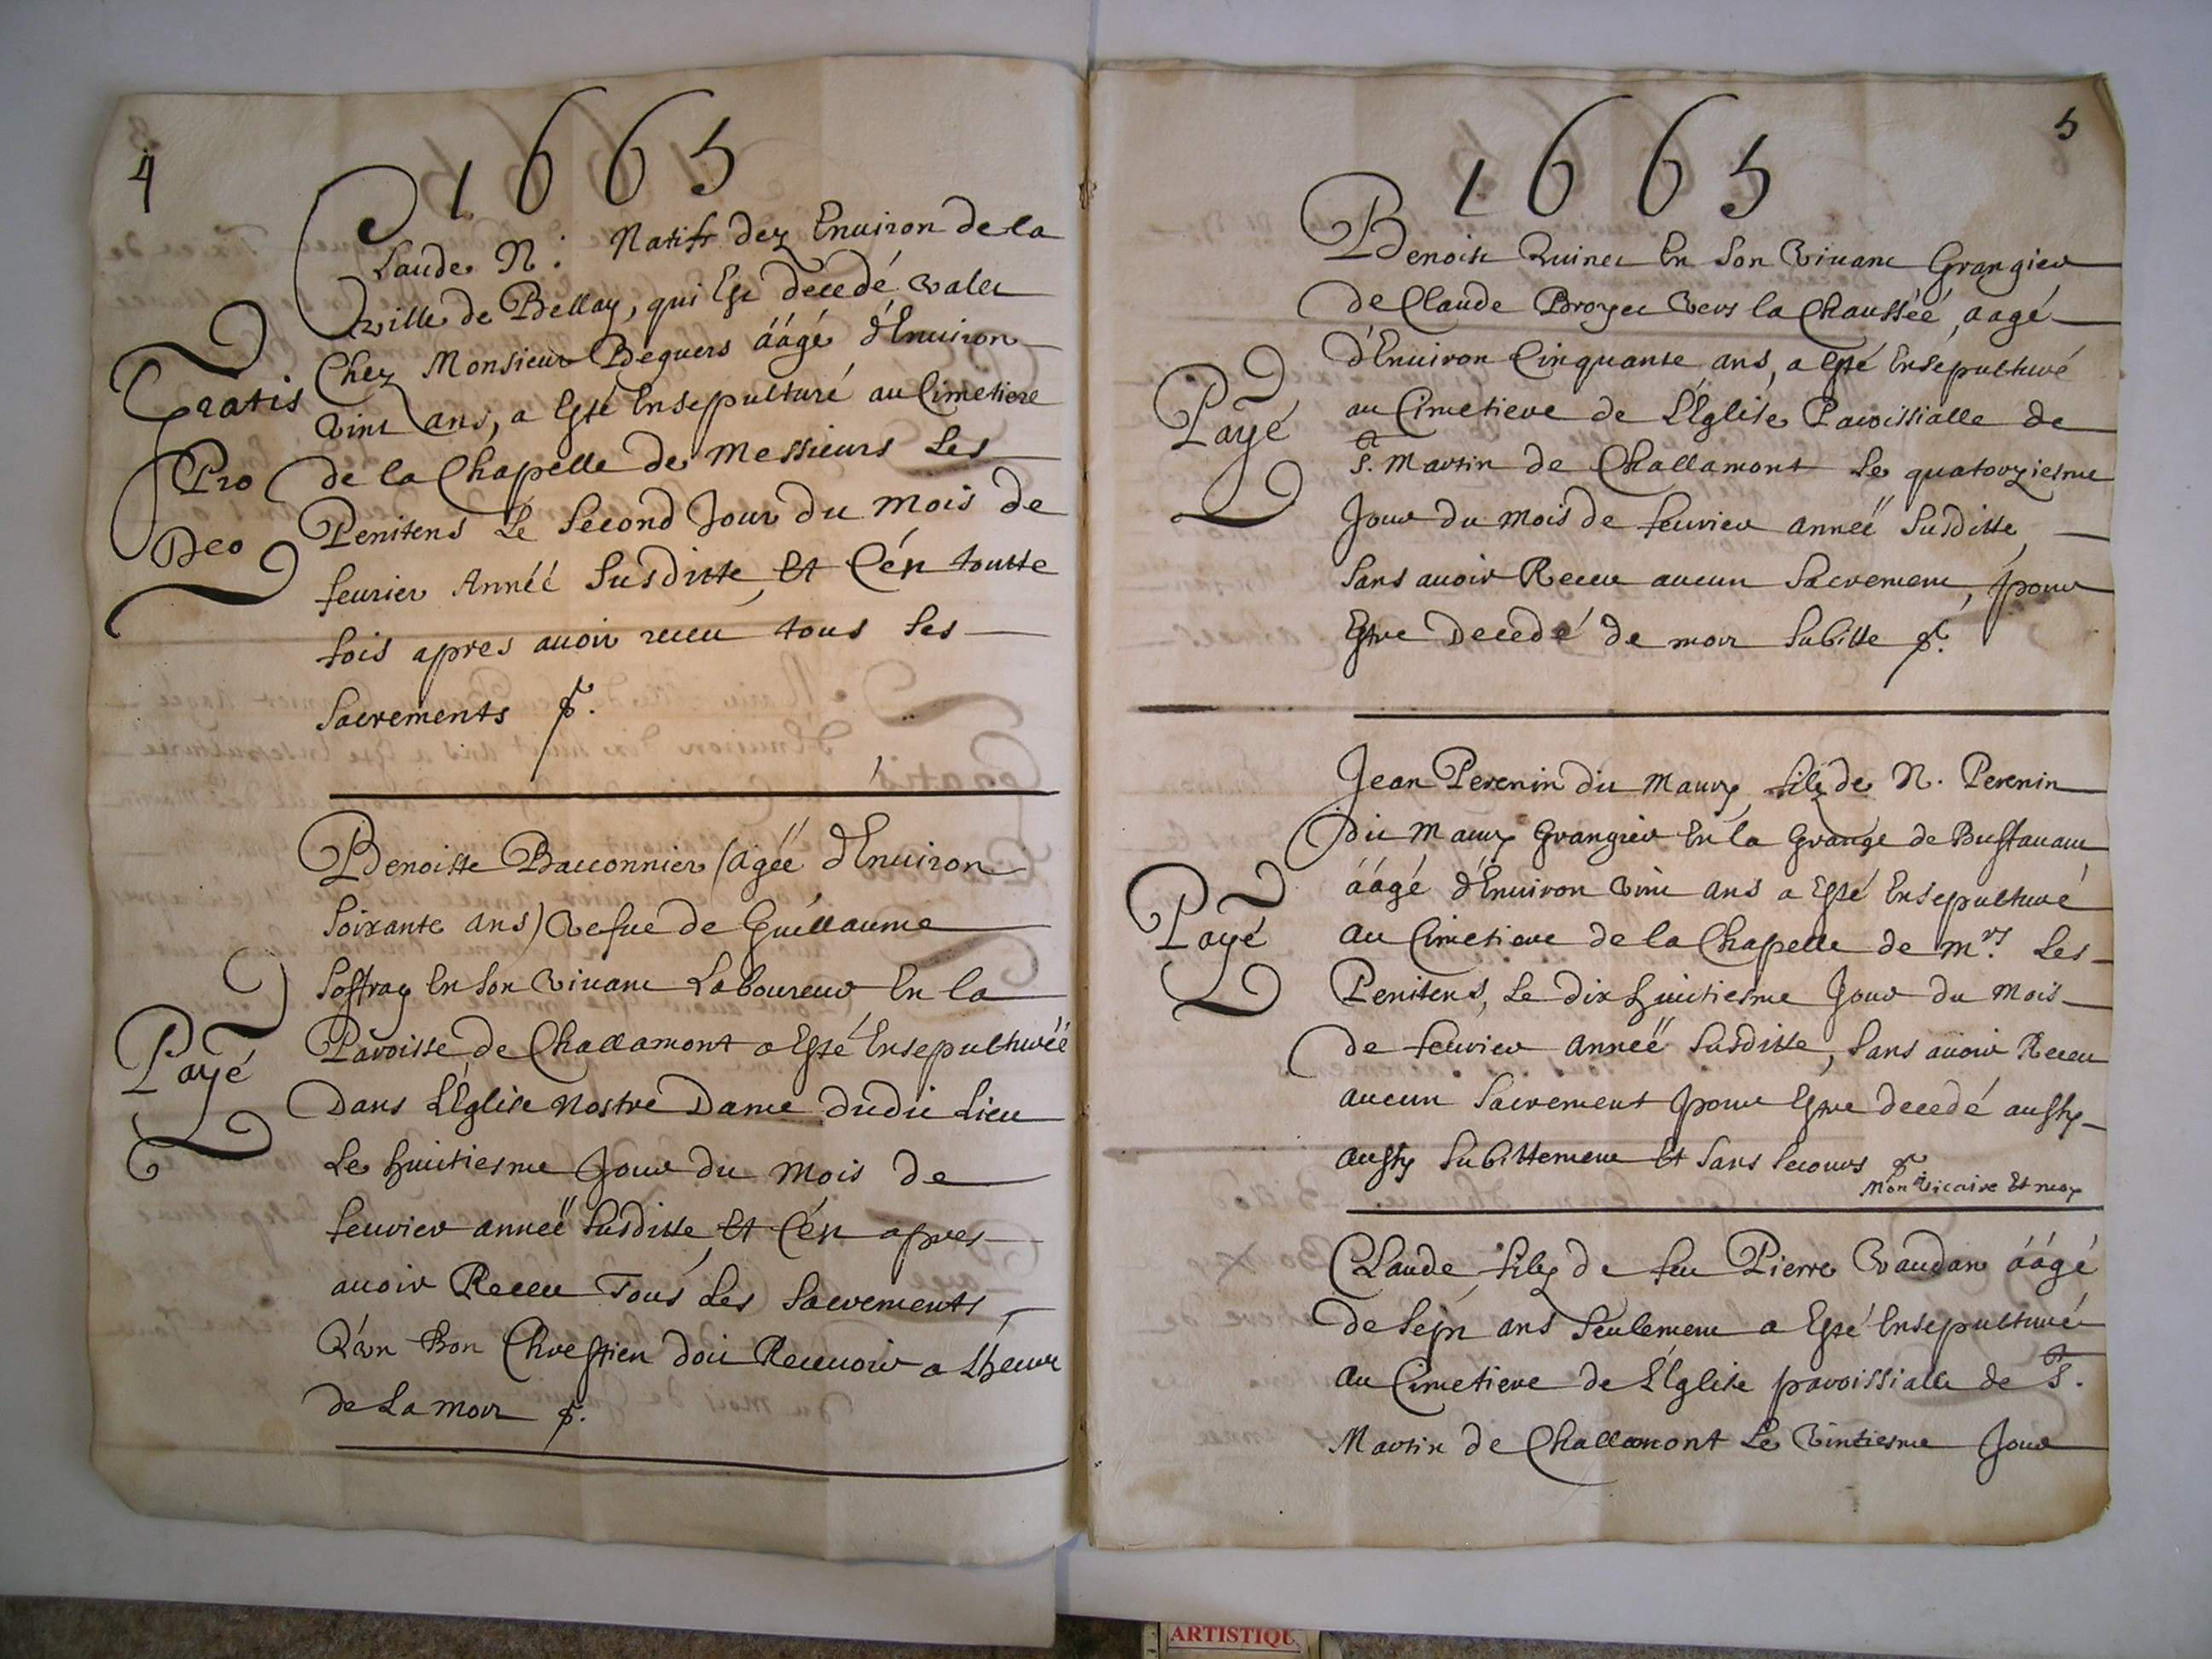 4
1665
Claude N: Natif dez Enuiron de la
ville de Bellay, qui Est decedé valet
Chez Monsieur Deguers áágé d'Enuiron
vint ans, a Esté Ensepulturé au Cimetiere
de la Chapelle de Messieurs Les
Penitens Le Second Jour du Mois de
feurier Annéé Susditte, Et C'ést toutte
fois apres auoir receu tous Ses
Sacrements
Gratis
Pro
Deo
Benoitte Baconnier (Agéé d'Enuiron
Soixante ans) Vefue de Guillaume
en Son Viuant Laboureur En la
Paroisse de Challamont a Esté Ensepulturéé
Dans L'Eglise Nostre Dame dudit Lieu
Le huitiesme Jour du Mois de
feurier annéé Susditte, Et C'ést apres
auoir Receu Tous Les Sacrements,
Q'vn Bon Chrestien doit Receuoir a L'heure
de La mort
Payé
5
1665
Benoist En Son Viuant Grangier
de Claude Broyer Vers la Chausséé, aagé
d'Enuiron Cinquante ans, a Esté Ensepulturé
au Cimetiere de L'Eglise Paroissialle de
St. Martin de Challamont Le quatorziesme
Jour du Mois de feurier annéé Susditte,
Sans auoir Receu aucun Sacrement, pour
Estre Decedé de mort Subitte
Payé
Jean Perenin dit Maury, filz de N. Perenin
dit Maury Grangier En la Grange de
áágé d'Enuiron Vint ans a Esté Ensepulturé
au Cimetiere de la Chapelle de Mrs. Les
Penitens, Le dix huitiesme Jour du Mois
de feurier annéé Susditte, Sans auoir Receu
aucun Sacrement pour Estre decedé aussy
aussy Subittement Et Sans Secours
Mon Vicaire Et moy
Payé
Claude filz de feu Pierre Vaudan áágé
de Sépt ans Seulement a Esté Ensepulturé
au Cimetiere de L'Eglise paroissialle de St.
Martin de Challamont Le Vintiesme Jour
ARTISTIQU